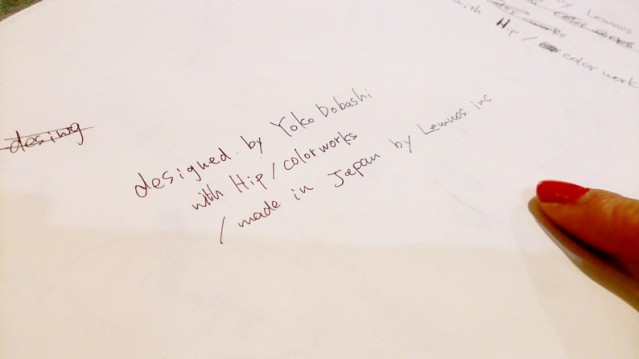 by Lemnos
with Hip / color work
desing
designed by Yoko Dobashi
with Hip / colorworks
/ made in Japan by Lemnos.inc